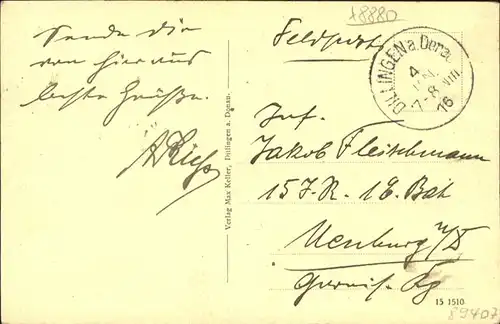 18880
Sende dir
von hier aus
beste Grüße.
Verlag Max Keller, Dillingen a. Donau.
Feldpost
DILLINGEN a. Donau
4
7-8 VIII
16
Inf.
Jakob Fleischmann
15 J.-R. 1 E. Bat
Neuburg a/D
Garnis.
15 1510
89407